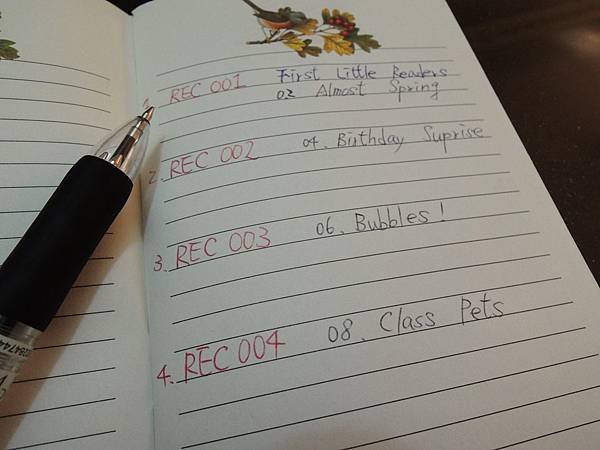 1. REC 001 First Little Readers
02 Almost Spring
2. REC 002 04. Birthday Suprise
3. REC 003 06. Bubbles!
4. REC 004 08. Class Pets